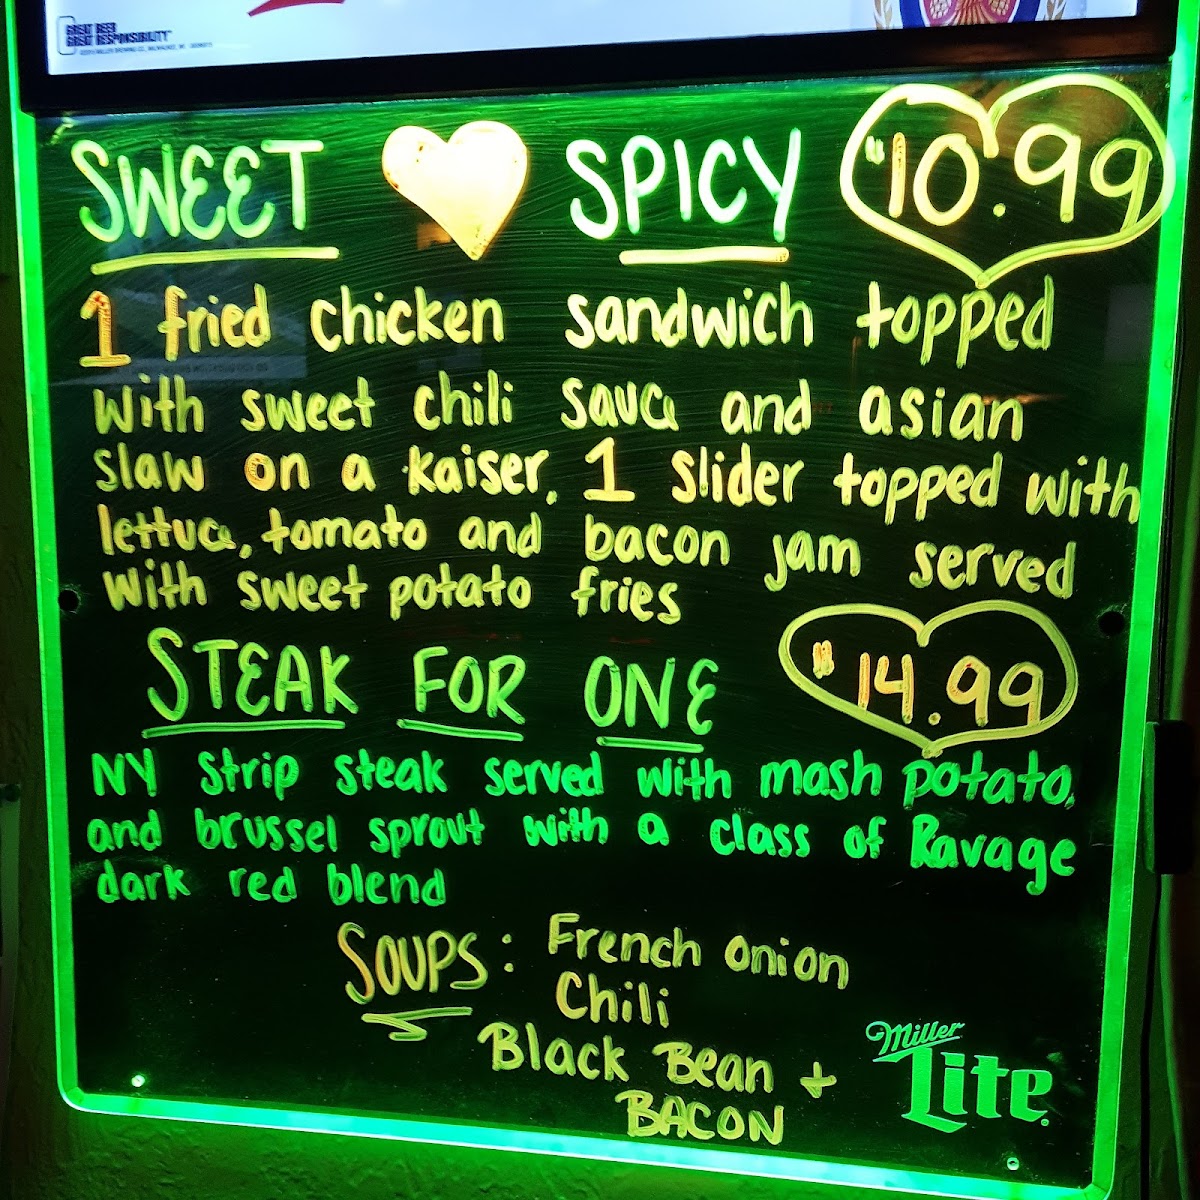 GREAT BEER
GREAT RESPONSIBILITY
SWEET SPICY $10.99
1 fried chicken sandwich topped
with sweet chili sauce and asian
slaw on a kaiser, 1 slider topped with
lettuce, tomato and bacon jam served
with sweet potato fries
STEAK FOR ONE $14.99
NY Strip steak served with mash potato,
and brussel sprout with a class of Ravage
dark red blend
SOUPS: French onion
Chili
Black Bean +
BACON
Miller
Lite